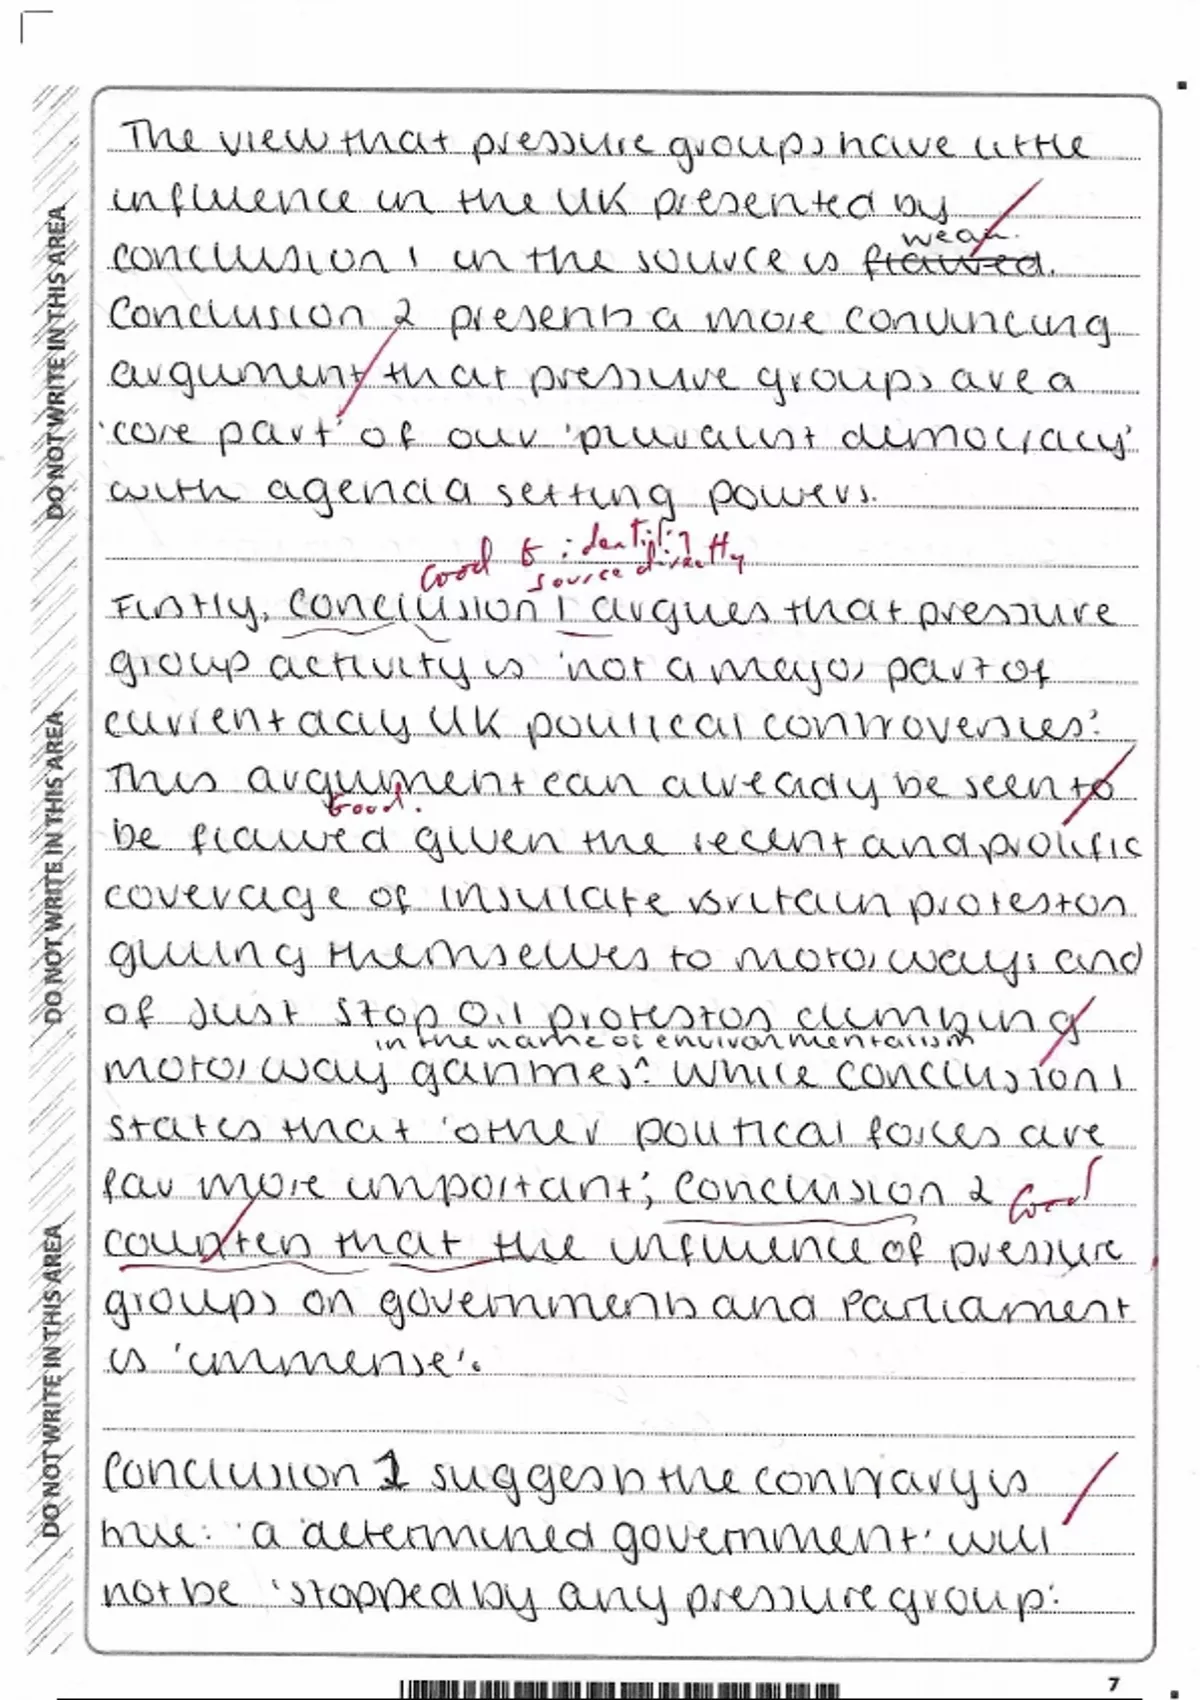 The view that pressure groups have little
influence in the UK presented by
weak.
conclusion 1 in the source is flawed.
Conclusion 2 presents a more convincing
argument that pressure groups are a
'core part' of our 'pluralist democracy'
with agenda setting powers.
Good to identify
source directly
Firstly, conclusion 1 argues that pressure
group activity is 'not a major part of
current day UK political controversies'.
This argument can already be seen to
Good.
be flawed given the recent and prolific
coverage of Insulate Britain protestors
gluing themselves to motorways and
of Just Stop Oil protestors climbing
in the name of environmentalism
motorway gantries. While conclusion 1
states that 'other political forces are
far more important', conclusion 2
Good
counters that the influence of pressure
groups on governments and Parliament
is 'immense'.
Conclusion 1 suggests the contrary is
true: 'a determined government' will
not be 'stopped by any pressure group'.
DO NOT WRITE IN THIS AREA
DO NOT WRITE IN THIS AREA
DO NOT WRITE IN THIS AREA
7